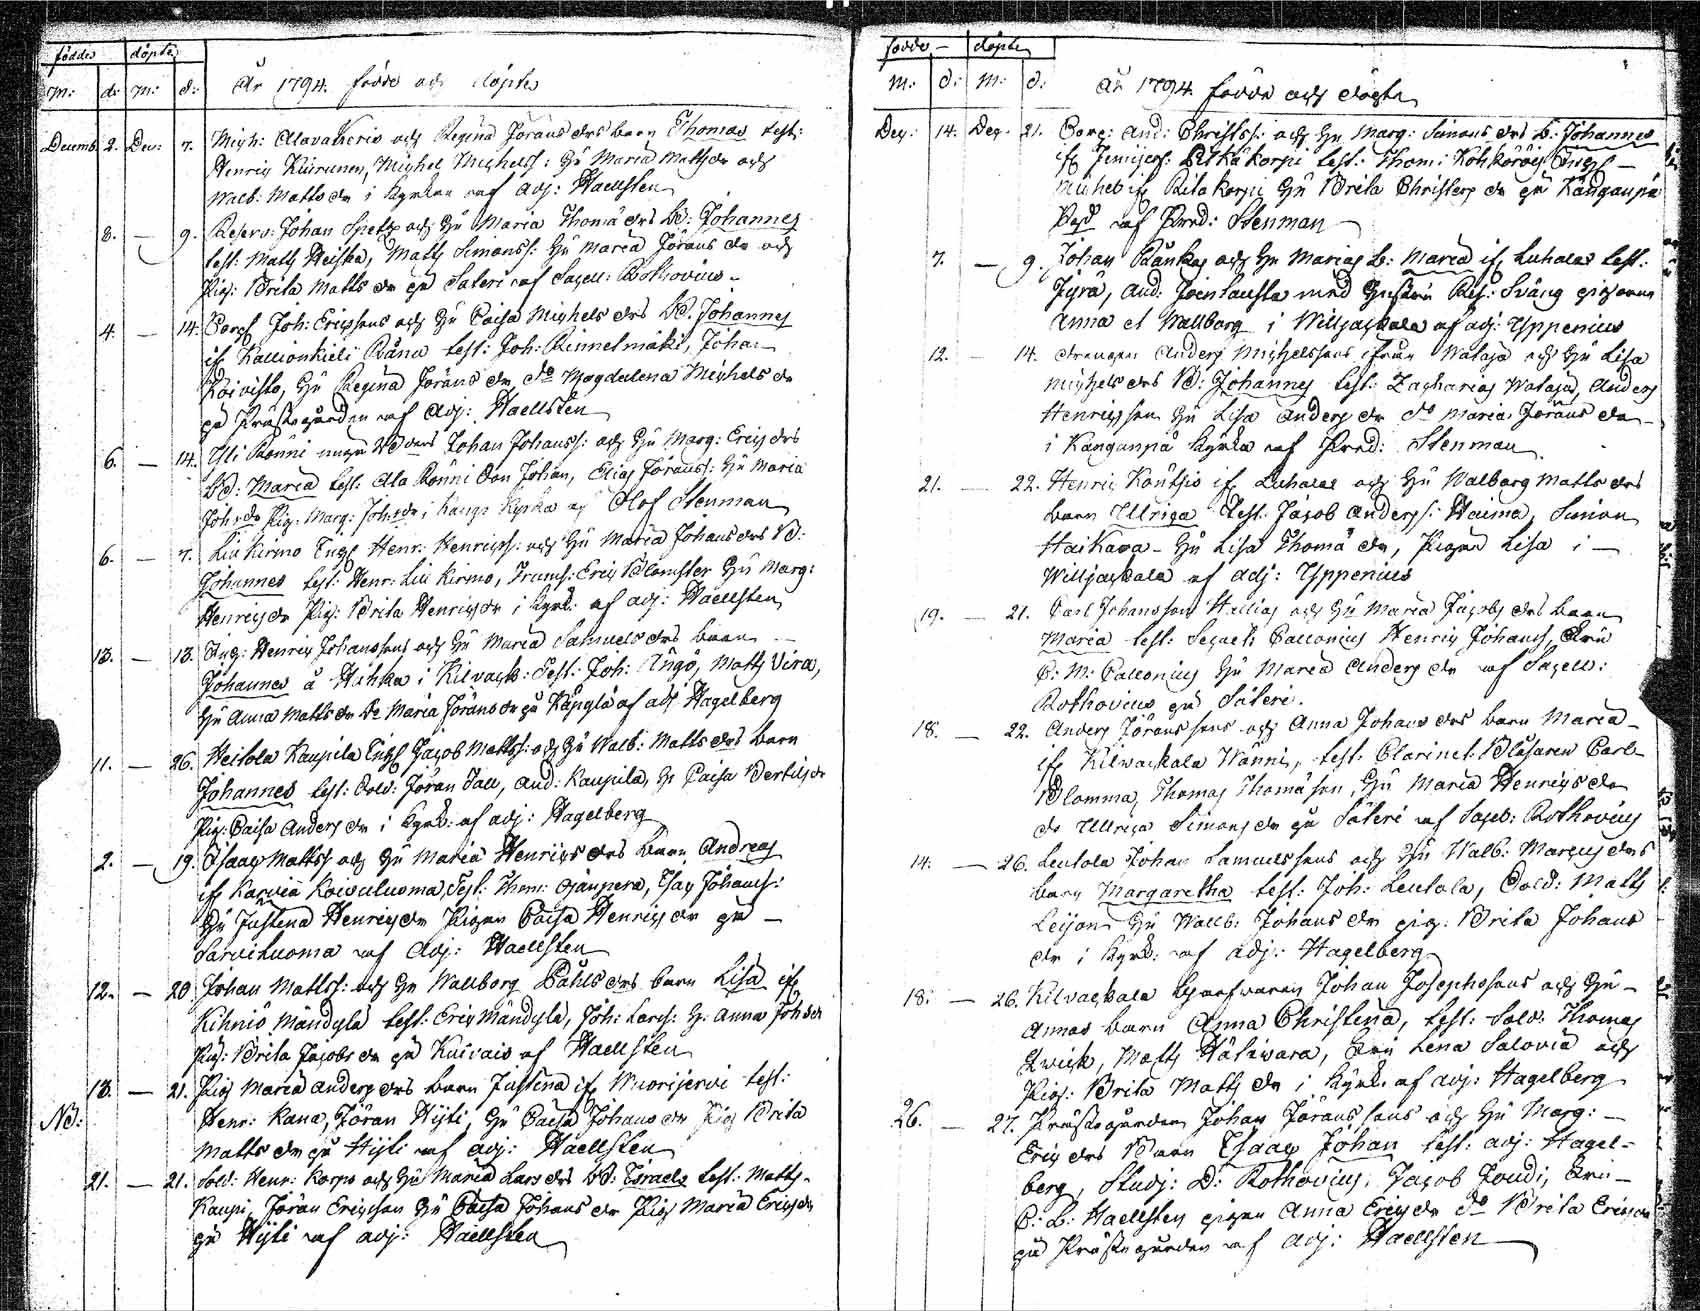 födde döpte
M: d: M: d: År 1794. födde och döpte
Decemb 2. Dec: 7. Mich: Alavakeris och Regina Jörans drs barn Thomas test:
Henric Kiirunen, Michel Michelss: Hu Maria Matts dr och
Walb: Matts dr i Kyrkan af Adj: Haellsten
8. — 9. Reserv: Johan Spets och Hu Maria Thomæ drs B: Johannes
test: Matts Heiska, Matts Simonss: Hu Maria Jörans dr och
Pig: Brita Matts dr på Säteri af Sacell: Bothovius
4. — 14. Joh: Ericsons och Hu Caisa Michels drs B. Johannes
if Kallionkieli test: Joh: Rinnetmäki, Johan
Koivisto, Hu Regina Jörans dr, do Magdalena Michels dr
på Prästegården af Adj: Haellsten
6. — 14. Yli Rönni Johan Johanss: och Hu Marg: Erics drs
B: Maria test: Ala Rönni Johan, Elias Jöranss: Hu Maria
Joh: dr Pig: Marg: Joh: dr i Kang: Kyrka af Olof Stenman
6. — 7. Liu Kirmo Henr: Henricss: och Hu Maria Johans drs B:
Johannes test: Henr: Liu Kirmo, Trums: Eric Blomster Hu Marg:
Henrics dr Pig: Brita Henrics dr i Kyrk: af Adj: Haellsten
13. — 13. Henric Johanssons och Hu Maria Samuels drs barn
Johannes å Huhka i Kilvack: Test: Joh: Ångö, Matts Vira,
Hu Anna Matts dr Do Maria Jörans dr på Kångla af Adj Hagelberg
11. — 26. Heitola Kaupila Jacob Mattss: och Hu Walb: Matts drs barn
Johannes test: Sold: Jöran Tall, And: Kaupila, Hu Caisa Bertils dr
Pig: Caisa Anders dr i Kyrk: af Adj: Hagelberg
2. — 19. Isaac Mattss och Hu Maria Henrics drs barn Andreas
if Karvia Koivuluoma, Test: Thom: Ojanperä, Isac Johanss:
Hu Justina Henrics dr Pigan Caisa Henrics dr på —
Sarviluoma af Adj: Haellsten
12. — 20 Johan Mattss: och Hu Wallborg Påhls drs barn Lisa if
Kihniö Mändylä test: Eric Mändylä, Joh: Larss: H: Anna Joh dr
Pig: Brita Jacobs dr på Kuivais af Haellsten
13. — 21. Pig Maria Anders drs barn Justina if Wuorijervi test:
NB: Henr: Kana, Jöran Hyti, Hu Caisa Johans dr Pig Brita
Matts dr på Hyti af Adj: Haellsten
21. — 21. Sold: Henr: Korpo och Hu Maria Lars drs B: Israel test: Matts
Kaupi, Jöran Ericsson Hu Caisa Johans dr Pig Maria Erics dr
på Hyti af Adj: Haellsten
födde — döpte
M: d: M: d: År 1794 födde och döpte
Dec: 14. Dec: 21. And: Christss: och Hu Marg: Simons drs B: Johannes
if Jämijerf: Pitkäkorpi test: Thom: Kohkoröi —
Michel if Ritakorpi Hu Brita Christers dr på Kångaspä
af Pred: Stenman
7. — 9. Johan Rånkas och Hu Marias B: Maria if Luhalax test:
Jyrä, And: Joensausta med hustru Res: Sväng pigorna
Anna et Wallborg i Willjackala af Adj: Yppenius
12. — 14. drengen Anders Michelssons ifrån Wataja och Hu Lisa
Michels drs B: Johannes test: Zacharias Wataja, Anders
Henricsson Hu Lisa Anders dr do Maria Jörans dr
i Kangaspä Kyrka af Pred: Stenman.
21. — 22. Henric Köntsis if Luhalax och Hu Walborg Matts drs
barn Ullrica Test: Jacob Anderss: Haima, Simon
Haikara — Hu Lisa Thomæ dr, Pigan Lisa i —
Willjackala af Adj: Yppenius
19. — 21. Carl Johansson Hallias och Hu Maria Jacobs drs barn
Maria test: Calonius Henric Johanss, Fru
C: M: Calonius Hu Maria Anders dr af Sacell:
Bothovius på Säteri.
18. — 22. Anders Jöranssons och Anna Johans drs barn Maria
if Kilwackala Wänni, test: Clarinet: Blåsaren Carl
Blomma, Thomas Thomæson, Hu Maria Henrics dr
do Ullrica Simons dr på Säteri af Sacel: Bothovius
14. — 26. Leutola Johan Samuelssons och Hu Walb: Marcus drs
barn Margaretha test: Joh: Leutola, Sold: Matts
Leijon Hu Wallb: Johans dr pig: Brita Johans
dr i Kyrk: af Adj: Hagelberg
18: — 26. Kilvackala Johan Josephssons och Hu —
Annas barn Anna Christina, test: Sold: Thomas
Qvick, Matts Hätivara, Fru Lena Salovia och
Pig: Brita Matts dr i Kyrk: af Adj: Hagelberg
26. — 27. Prästegården Johan Jöranssons och Hu Marg: —
Erics drs Barn Isaac Johan test: Adj: Hagel-
berg, Studj: D: Bothovius, Jacob Joudi, Fru —
C: L: Haellsten pigan Anna Erics dr Do Brita Erics dr
på Prästegården af Adj: Haellsten